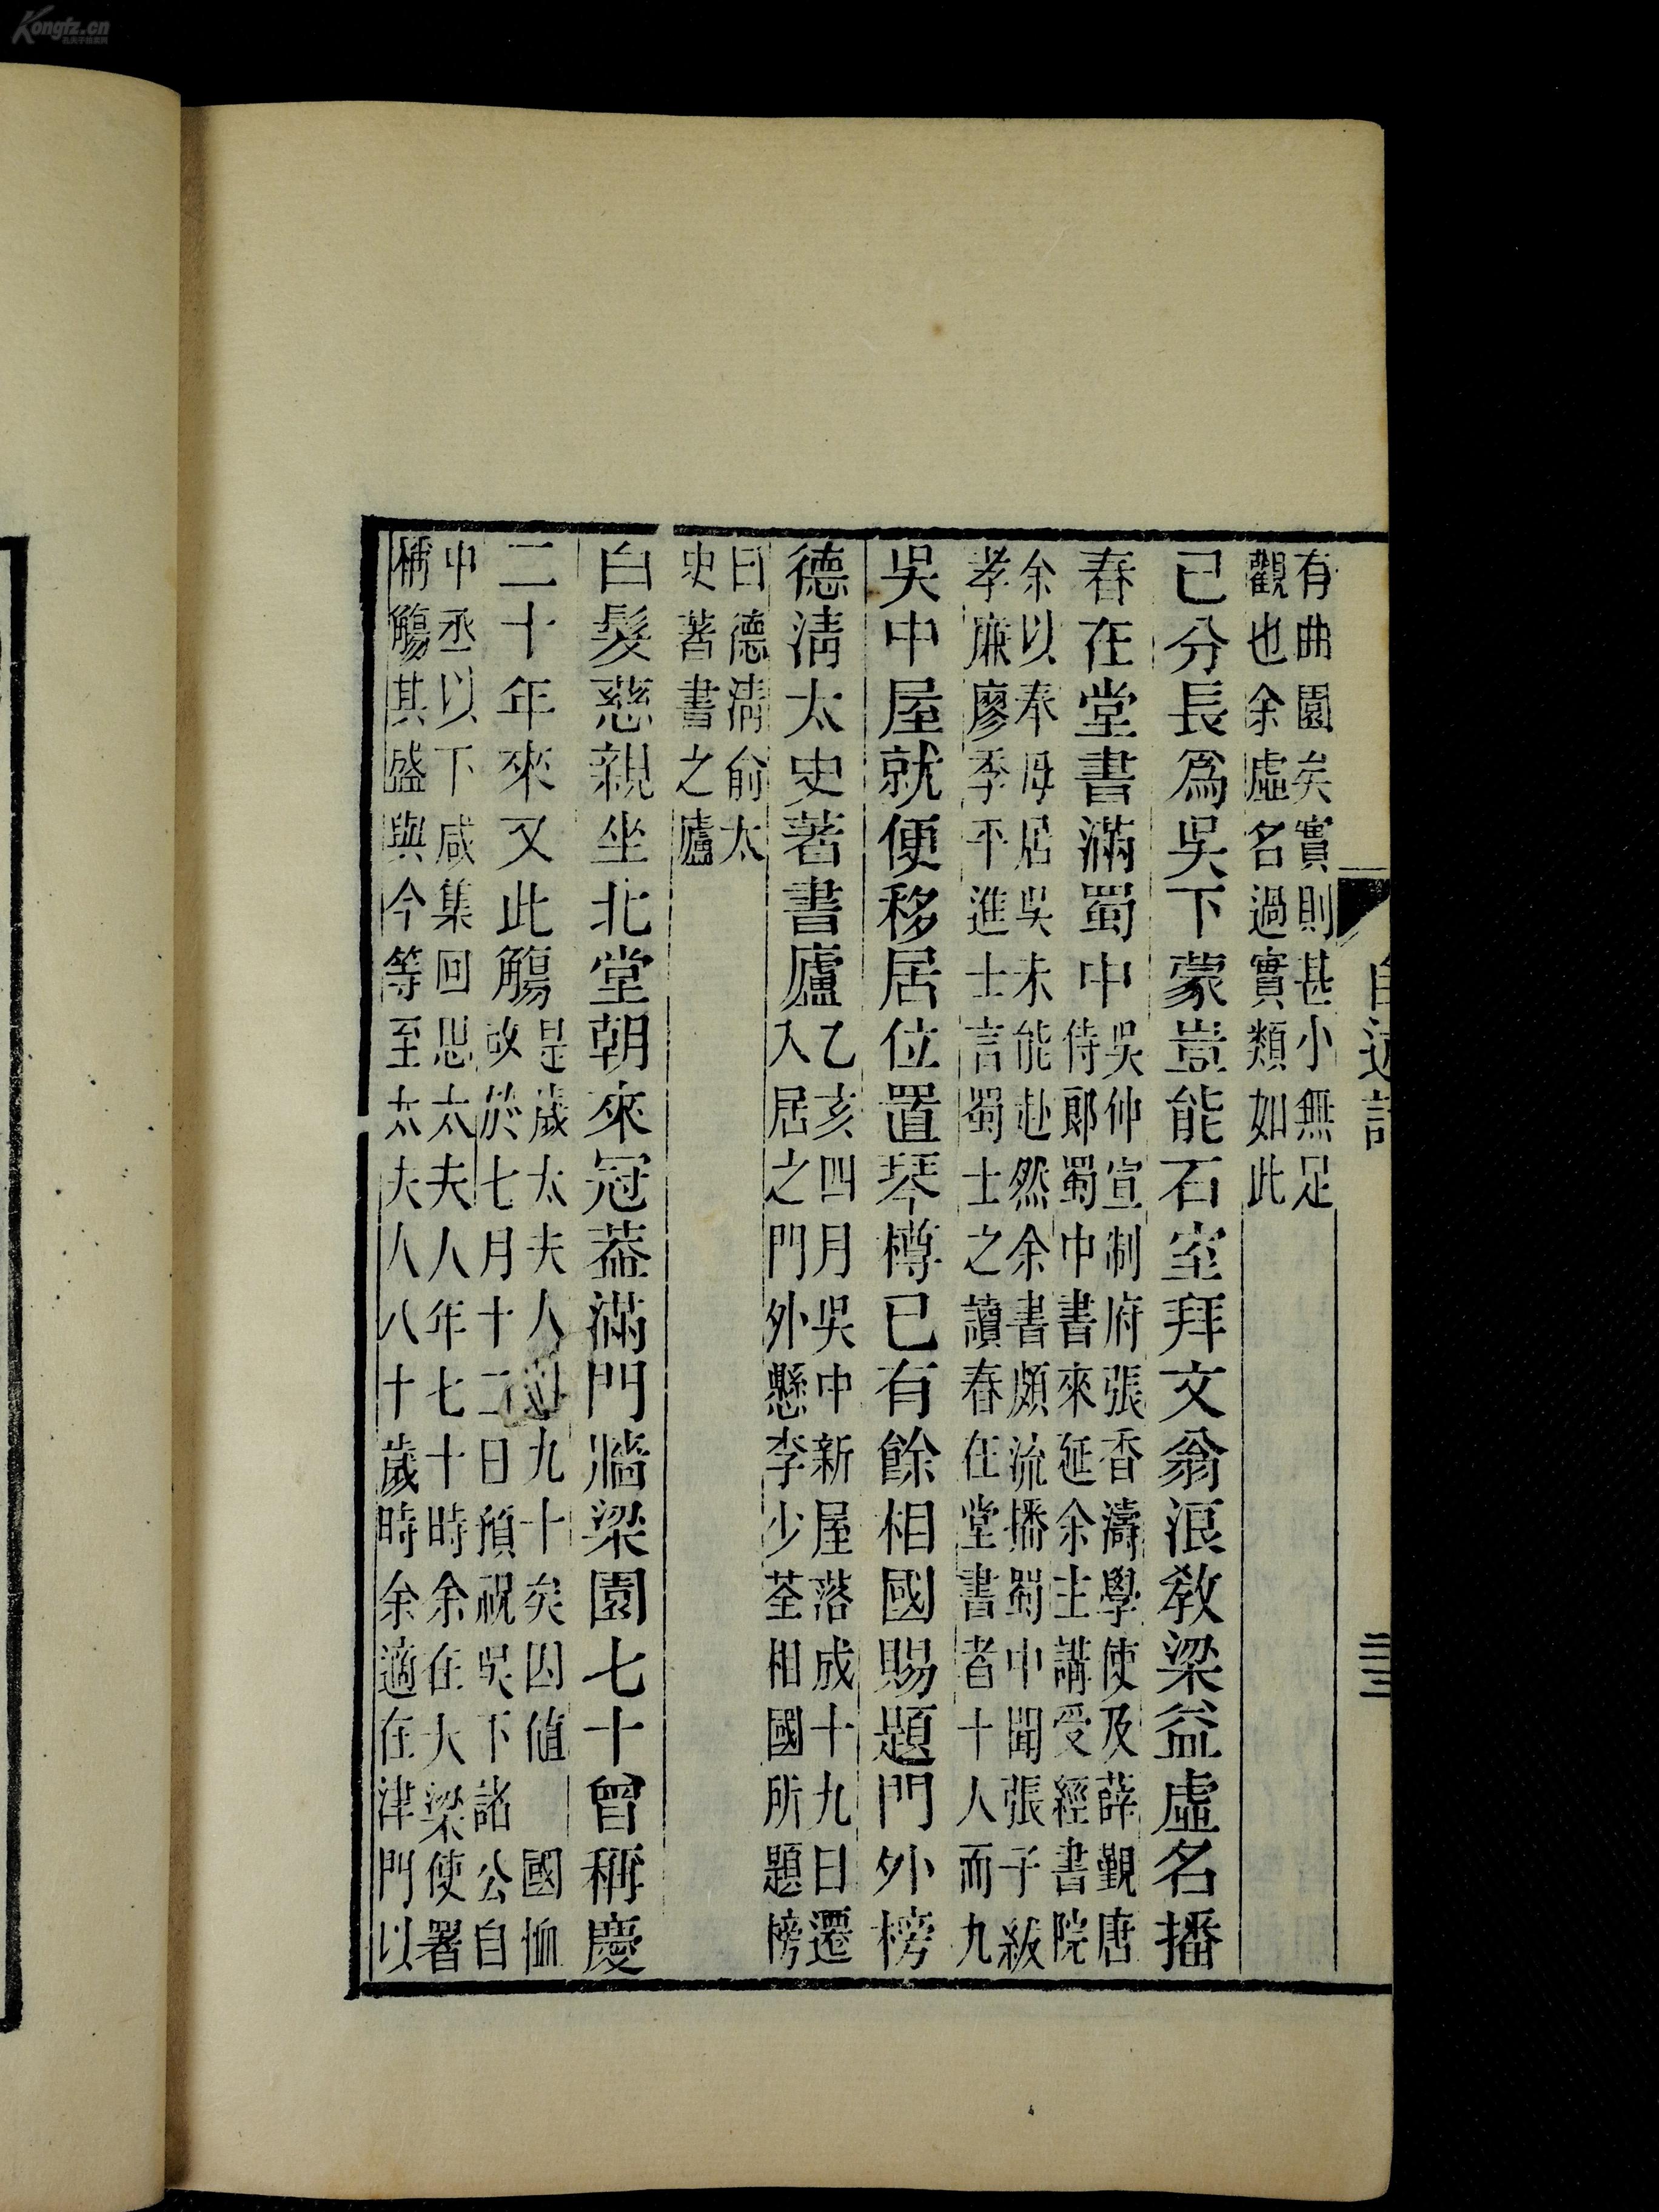 有曲園矣實則甚小無足
觀也余虛名過實類如此
已分長爲吳下蒙豈能石室拜文翁浪敎梁益虛名播
春在堂書滿蜀中
吳仲宣制府張香濤學使及薛覲唐
侍郞蜀中書來延余主講受經書院
余以奉母居吳未能赴然余書頗流播蜀中聞張子紱
孝廉廖季平進士言蜀士之讀春在堂書者十人而九
吳中屋就便移居位置琴樽已有餘相國賜題門外榜
德淸太史著書廬
乙亥四月吳中新屋落成十九日遷
入居之門外懸李少荃相國所題榜
曰德淸俞太
史著書之廬
白髮慈親坐北堂朝來冠葢滿門牆梁園七十曾稱慶
二十年來又此觴
是歲太夫人九十矣因値 國恤
改於七月十二日預祝吳下諸公自
中丞以下咸集回思太夫人年七十時余在大梁使署
稱觴其盛與今等至太夫人八十歲時余適在津門以
自述詩
三三
Kongfz.cn